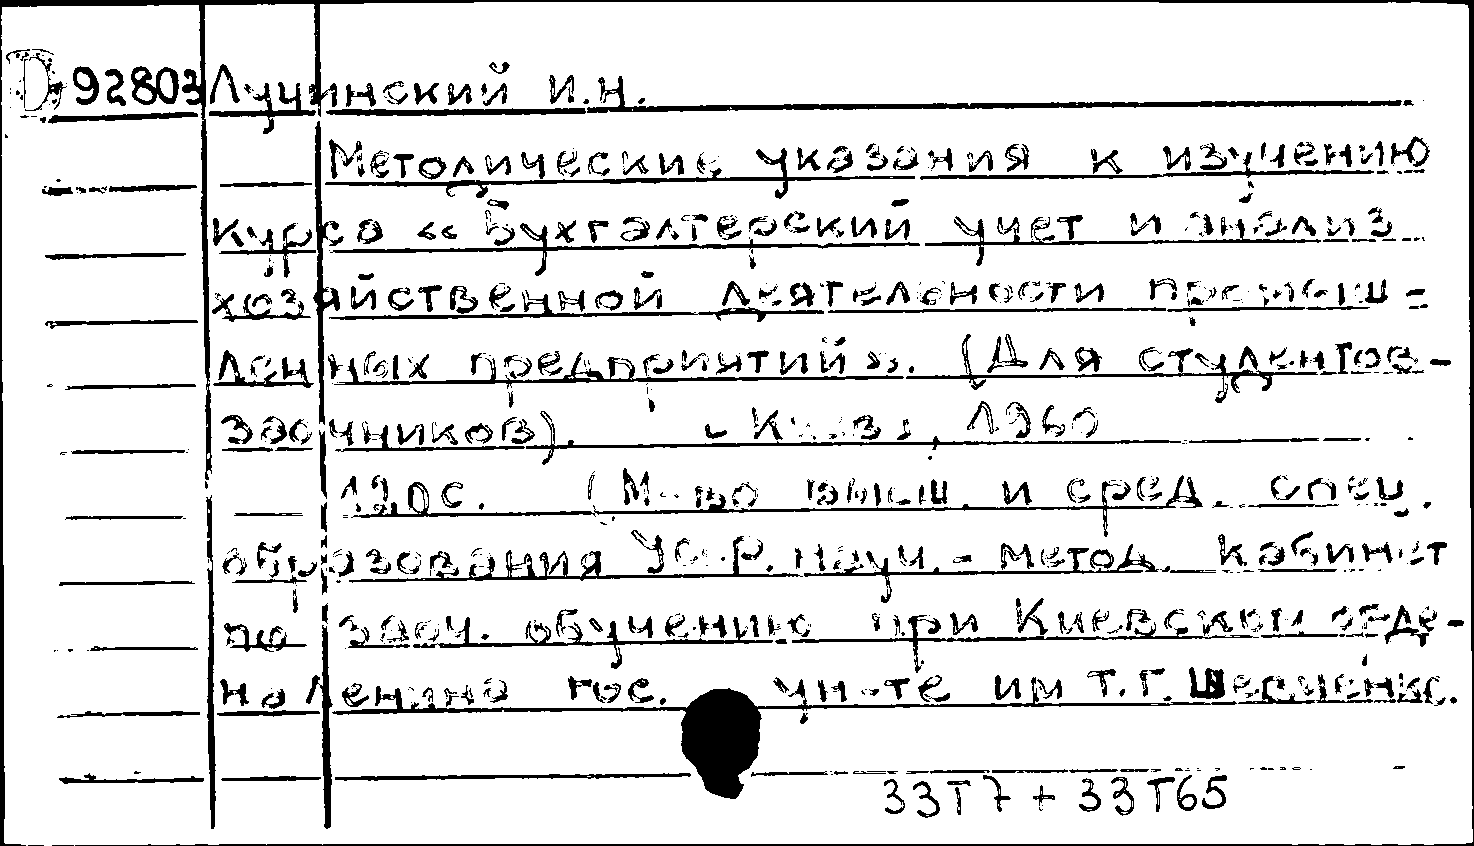 D 92803 Лучинский И.Н.
Методические указания к изучению
курса «Бухгалтерский учет и анализ
хозяйственной деятельности промыш=
ленных предприятий». (Для студентов-
заочников). Киев, 1960
120с. (М-во высш. и сред. спец.
образования УССР. Науч.-метод. кабинет
по заоч. обучению при Киевском орде-
на Ленина гос. ун-те им Т.Г. Шевченко.
33Т7 + 33Т65